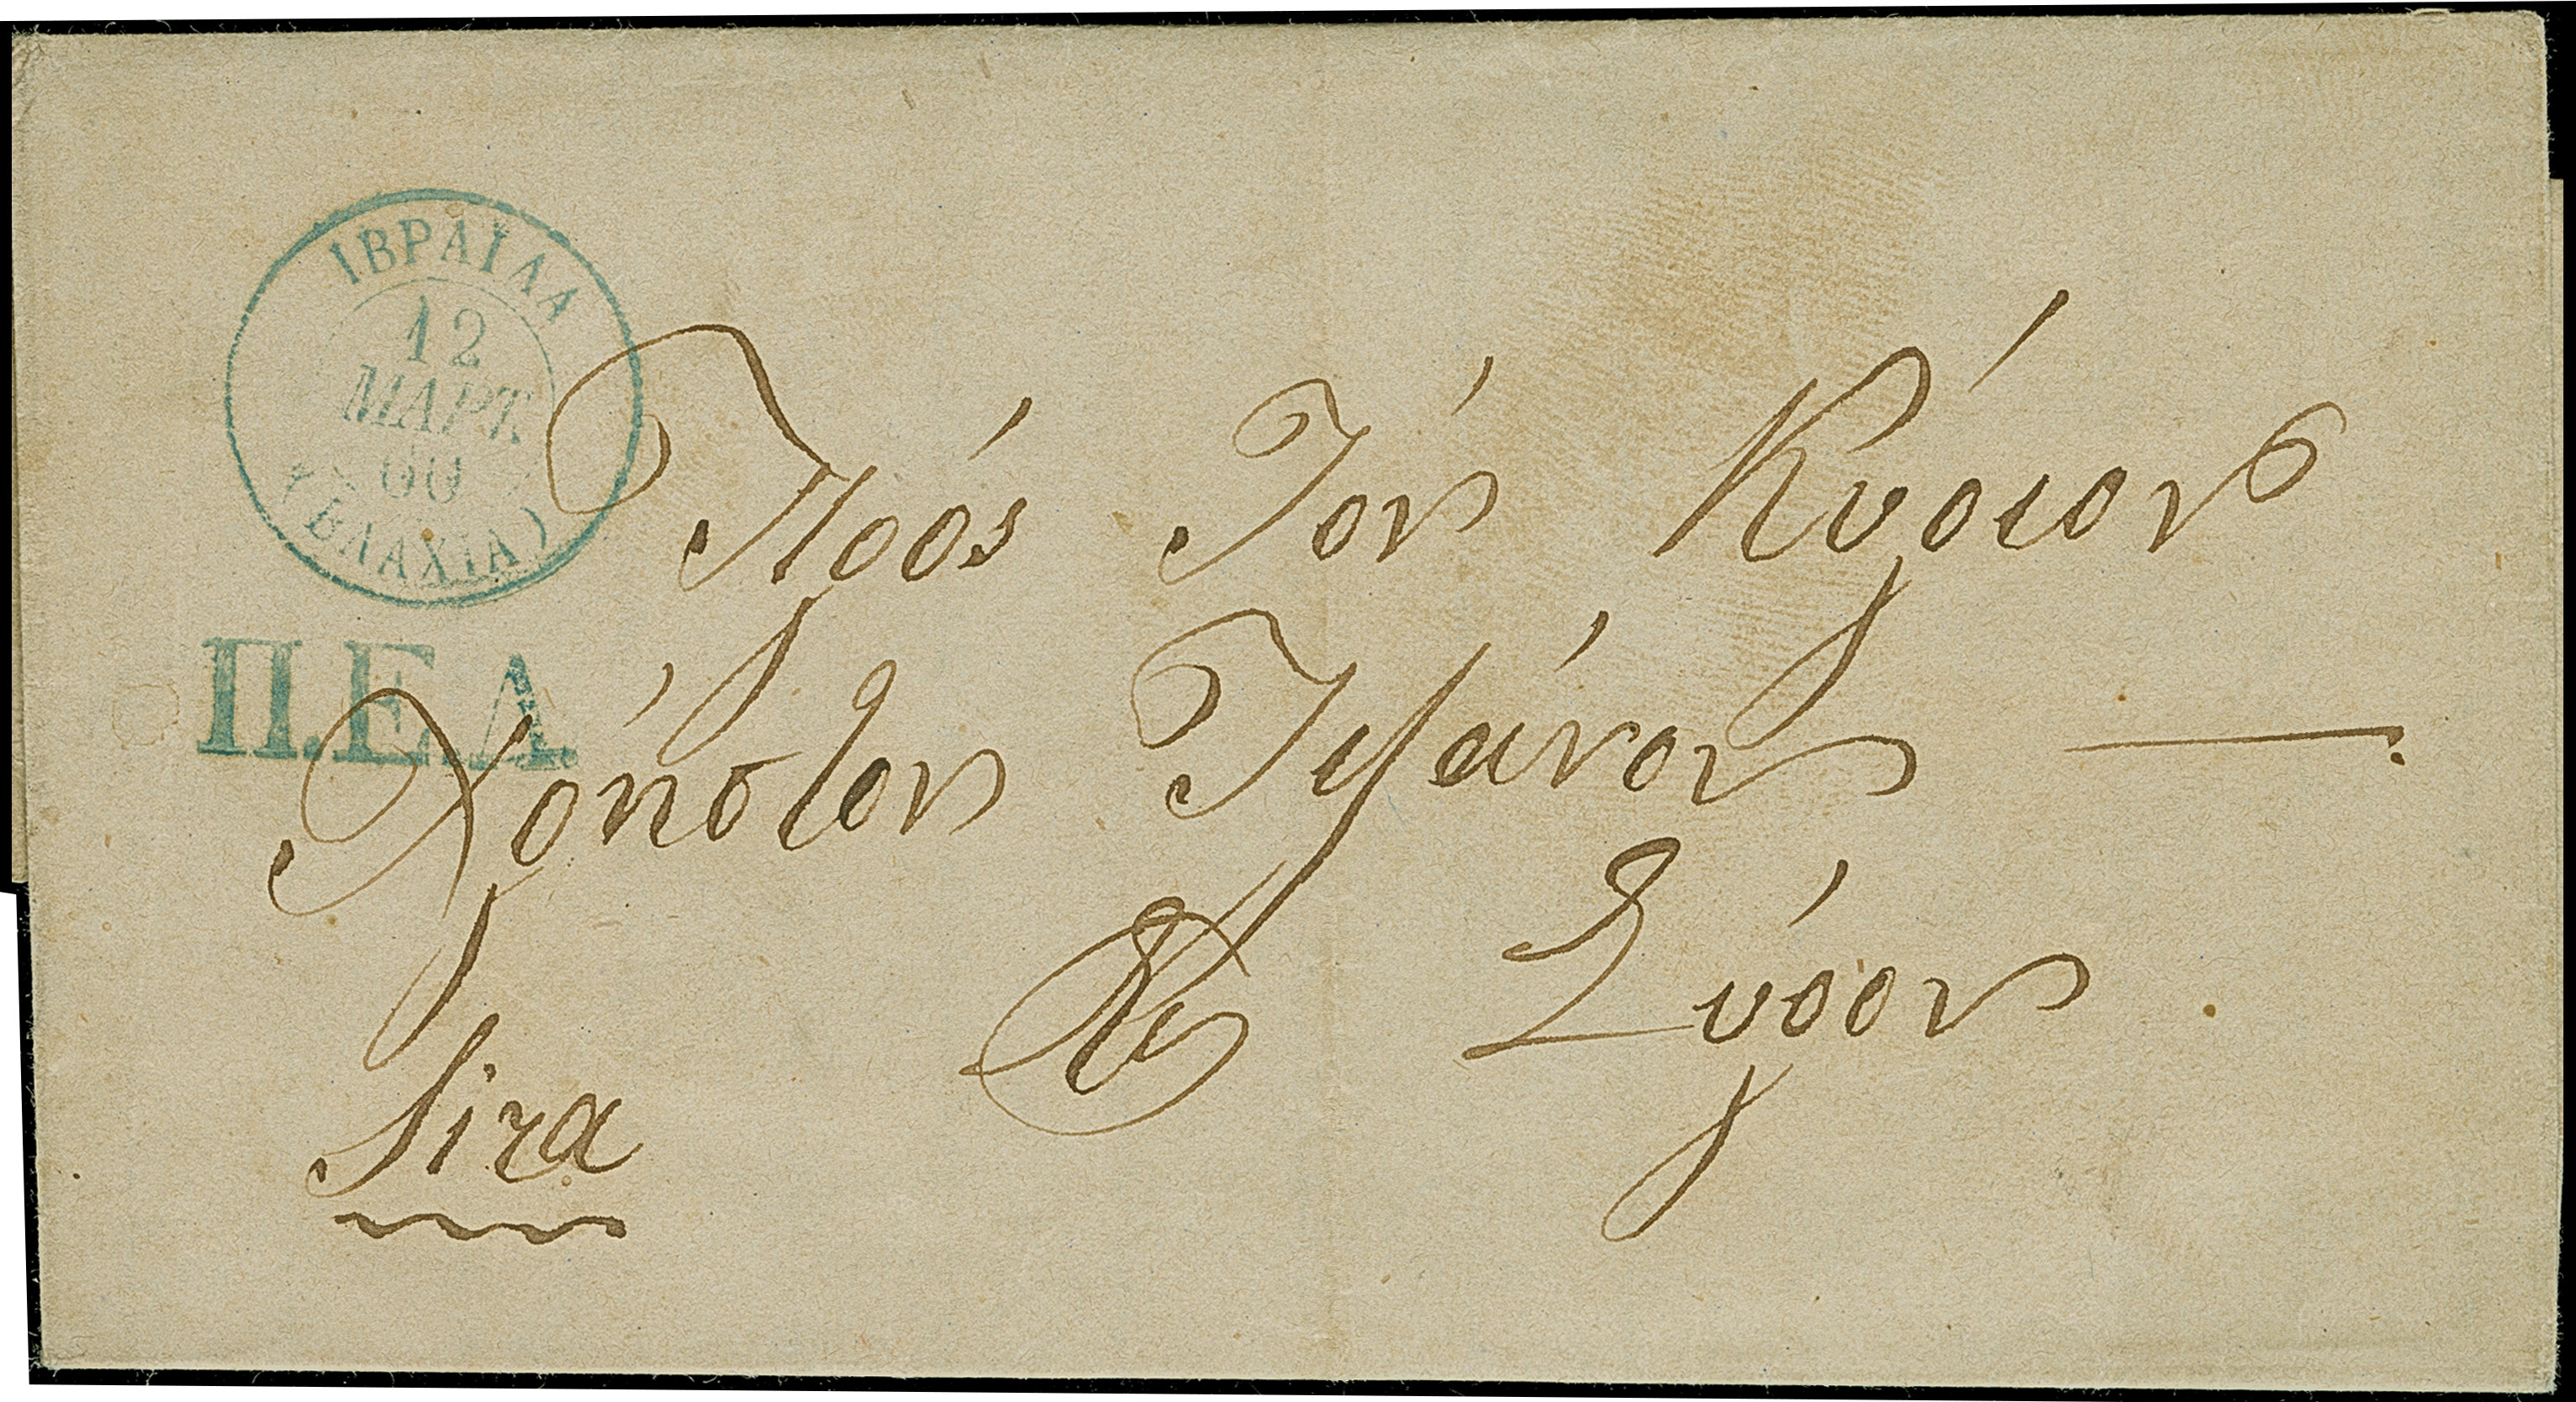 ΙΒΡΑΙΛΑ
12
ΜΑΡΤ.
60
(ΒΛΑΧΙΑ)
Π.Ε.Δ.
Πρός Τόν Κύριον
Χρήστον
Σύρον.
Sira